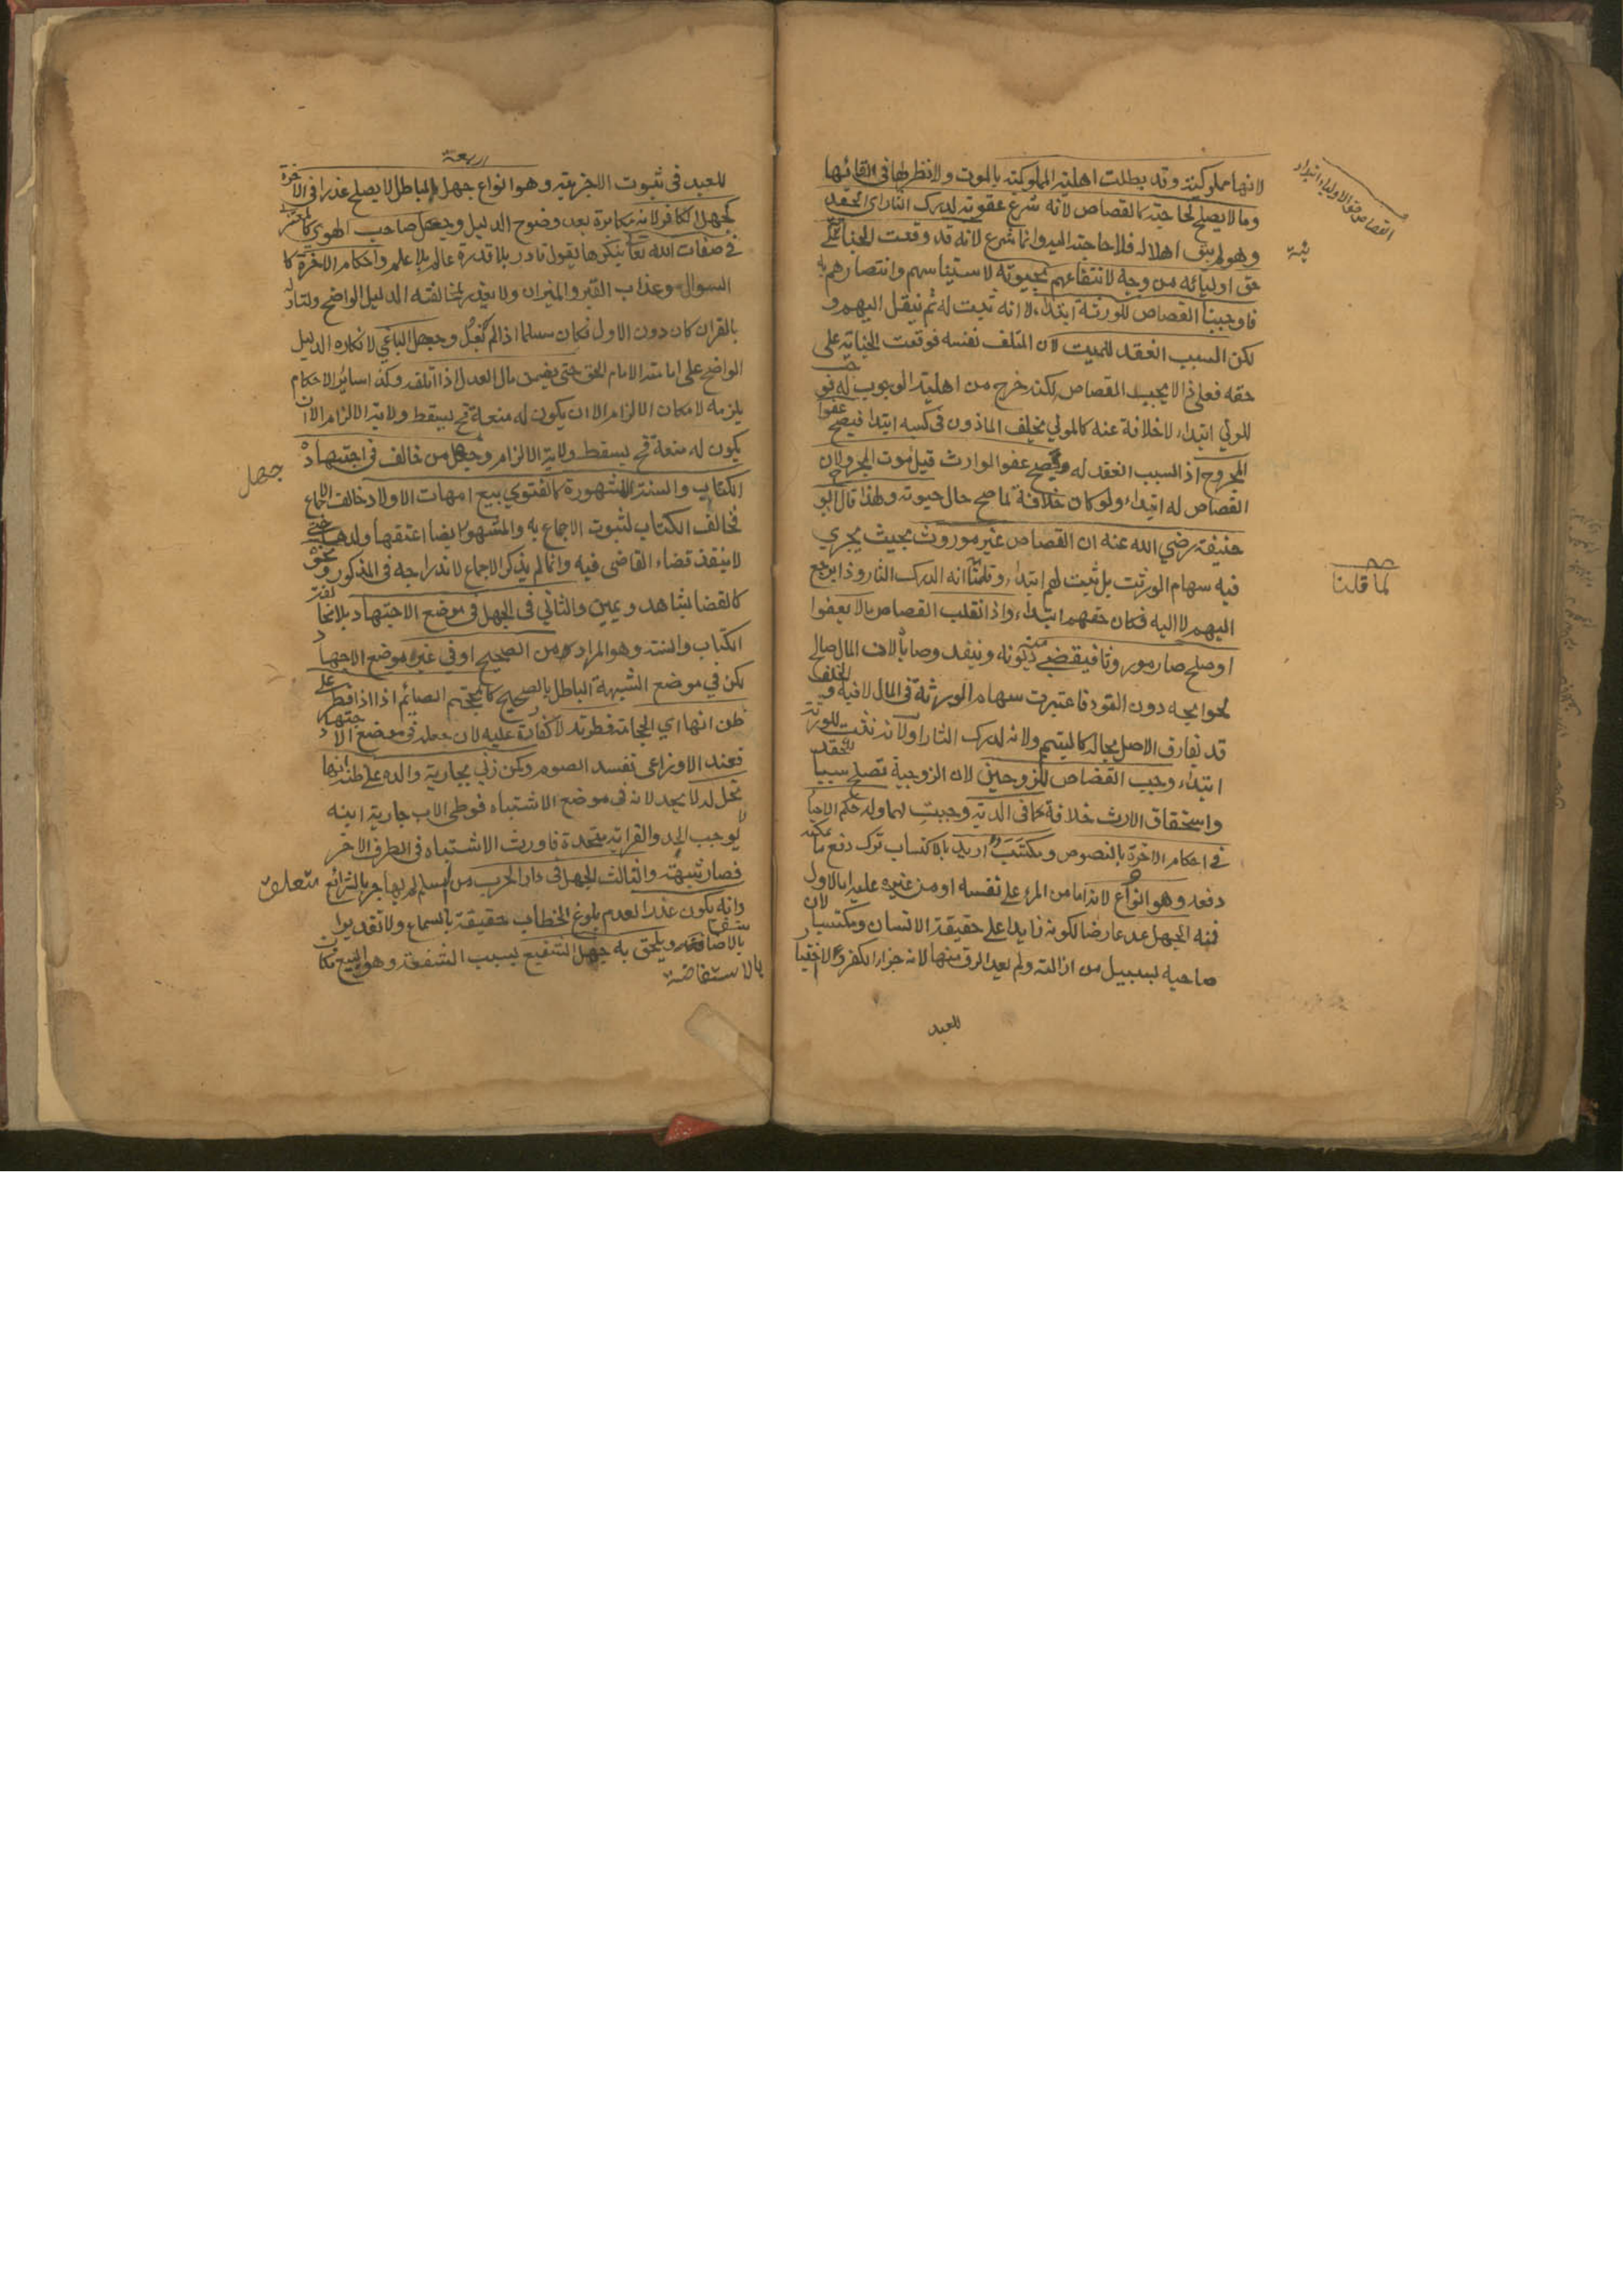 لانها مملوكية وقد بطلت اهلية المملوكية بالموت والانظر لها في القائها
وما لا يصلح لحاجته كالقصاص لانه شرع عقوبة لدرك الثار اي الحقد
وهو لم يبق اهلا له فلا حاجته اليه وانما شرع لانه قد وقعت الجناية على
حق اوليائه من وجه لانتفاعهم بحيوته لاستيناسهم وانتصارهم به
فاوجبنا القصاص للورثة ابتداء لا انه تثبت له ثم ينقل اليهم و
لكن السبب انعقد للميت لان المتلف نفسه فوقعت الجناية على
حقه فعلى ذا لا يجب القصاص لكنه خرج من اهلية الوجوب له
للولي ابتداء لا خلافة عنه كالمولي يخلف الماذون في كسبه ابتداء فيصح عفو
المجروح اذ السبب انعقد له ويصح عفو الوارث قبل موت المجروح لان
القصاص له ابتداء ولو كان خلافة لما صح حال حيوته ولهذا قال ابو
حنيفة رضي الله عنه ان القصاص غير موروث بحيث يجري
فيه سهام الورثة بل ثبت لهم ابتداء وقلنا انه الدرك الثار وذا يرجع
اليهم لا اليه فكان حقهم ابتداء واذا انقلب القصاص مالا بعفوا
او صلح صار موروثا فيقضى منه ديونه وينفد وصاياه لان المال صالح
لحوايجه دون القود فاعتبرت سهام الورثة في المال لا فيه والخلف
قد يفارق الاصل بحاله كالتيمم ولانه لدرك الثار اولا نه يثبت للورثة
ابتداء وجب القصاص للزوجين لان الزوجية تصلح سببا
واستحقاق الارث خلافة كما في الدية وجبت لهما وله حكم الاحيا
في احكام الاخرة بالنصوص ومكتسب اريد بالاكتساب ترك دفع ما يمكنه
دفعه وهو انواع لانه اما من المرء على نفسه او من غيره عليه اما الاول
فمنه الجهل عد عارضا لكونه زايدا على حقيقة الانسان ومكتسبا لان
صاحبه بسبيل من ازالته ولم يعد الرق منها لانه جزاء الكفر ولا اختيا
للعبد
القصاص حق الاولياء ابتداء
لما قلنا
اربعة
للعبد في ثبوت الاجزية وهو انواع جهل باطل لا يصلح عذرا في الاخرة
كجهل الكافر لانه مكابرة بعد وضوح الدليل وجهل صاحب الهوى كالمعتزلة
في صفات الله تعالى ينكرها يقول قادر بلا قدرة عالم بلا علم واحكام الاخرة كا
السوال وعذاب القبر والميزان ولا يعذر لمخالفته الدليل الواضح ولتاوله
بالقران كان دون الاول فكان مسلما اذا لم يغل وجهل الباغي لانكاره الدليل
الواضح على امامة الامام الحق حتى يضمن مال العدل اذا اتلفه وكذا ساير الاحكام
يلزمه لامكان الالزام الا ان يكون له منعة فح يسقط ولاية الالزام الا ان
يكون له منعة فح يسقط ولاية الالزام وجهل من خالف في اجتهاده
الكتاب والسنة المشهورة كالفتوي ببيع امهات الاولاد خالف الاجماع
فخالف الكتاب لثبوت الاجماع به والمشهور ايضا اعتقها ولدها حتى
لا ينفذ قضاء القاضي فيه وانما لم يذكر الاجماع لاندراجه في المذكور ونحوه
كالقضا بشاهد ويمين والثاني في الجهل في موضع الاجتهاد بلا مخالفة
الكتاب والسنة وهو المراد من الصحيح او في غير موضع الاجتهاد
لكن في موضع الشبهة الباطل بالصحيح كالمحتجم الصايم اذا افطر على
ظن انها اي الحجامة فطرته لا كفارة عليه لان جهله في موضع الاجتهاد
فعند الاوزاعي تفسد الصوم وكمن زنى بجارية والده على ظن انها
تحل له لا يحد لانه في موضع الاشتباه فوطي الاب جارية ابنه
لا يوجب الحد والقرابة متحدة فاورث الاشتباه في الطرف الاخر
فصار شبهة والثالث الجهل في دار الحرب من مسلم لم يهاجر بالشرائع متعلق
وانه يكون عذرا لعدم بلوغ الخطاب حقيقة بالسماع ولا تقديرا
بالاستفاضة ويلحق به جهل الشفيع بسبب الشفعة وهو البيع فكان
بالاستفاضة
جهل